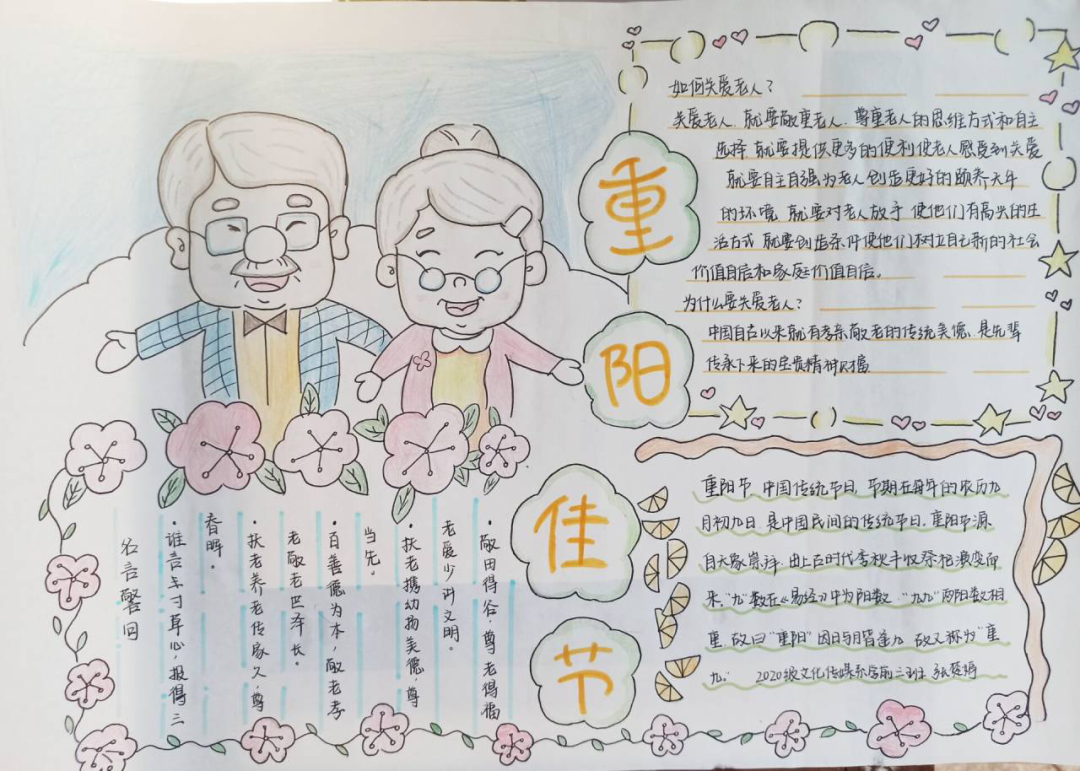 重
阳
佳
节
如何关爱老人?
关爱老人.就要敬重老人.尊重老人的思维方式和自主
选择 就要提供更多的便利使老人感受到关爱
就要自主自强为老人创造更好的颐养天年
的环境 就要对老人放手 使他们有高兴的生
活方式 就要创造条件使他们树立自己新的社会
价值自信和家庭价值自信。
为什么要关爱老人?
中国自古以来就有孝亲敬老的传统美德、是先辈
传承下来的宝贵精神财富
名言警句
·谁言寸草心，报得三
春晖。
·扶老养老传家久，尊
老敬老世泽长。
·百善德为本，敬老孝
当先。
·扶老携幼扬美德，尊
老爱少讲文明。
·敬田得谷，尊老得福
重阳节.中国传统节日.节期在每年的农历九
月初九日.是中国民间的传统节日.重阳节源
自天象崇拜.由上古时代季秋丰收祭祀演变而
来."九"数在《易经》中为阳数."九九"两阳数相
重.故曰"重阳" 因日与月皆逢九.故又称为"重
九." 2020级文化传媒系学前三班 张楚